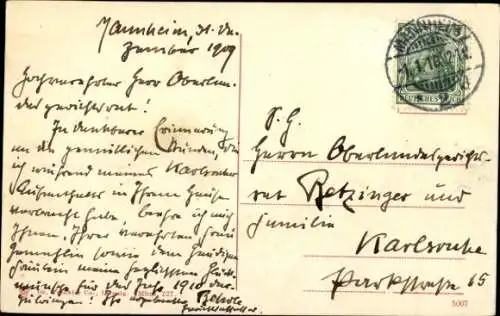 Mannheim, 31. De-
zember 1909
Hochverehrter Herr Oberlan-
desgerichtsrat!
In dankbarer Erinnerung
an die gemütlichen Stunden, die
ich während meines Karlsruher
Aufenthalts in Ihrem Hause
verbracht habe, beehre ich mich
Ihnen, Ihrer verehrten Frau
Gemahlin sowie dem gnädigen
Fräulein meine herzlichsten Glück-
wünsche für das Jahr 1910 dar-
zubringen! Ihr ergebenster
S. H.
Herrn Oberlandesgerichts-
rat Betzinger und
Familie
Karlsruhe
Parkstraße 15
MANNHEIM
1.1.10.
DEUTSCHES REICH
5007